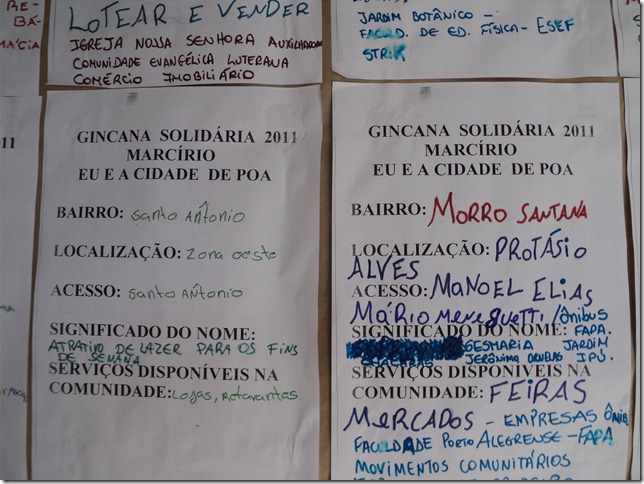 RE-
BA-
MÁCIA
LOTEAR E VENDER
IGREJA NOSSA SENHORA AUXILIADORA
COMUNIDADE EVANGÉLICA LUTERANA
COMÉRCIO IMOBILIÁRIO
JARDIM BOTÂNICO -
FACULD. DE ED. FÍSICA - ESEF
011
GINCANA SOLIDÁRIA 2011
MARCÍRIO
EU E A CIDADE DE POA
BAIRRO: Santo Antonio
LOCALIZAÇÃO: Zona oeste
ACESSO: Santo Antonio
SIGNIFICADO DO NOME:
ATRATIVO DE LAZER PARA OS FINS
DE SEMANA
SERVIÇOS DISPONÍVEIS NA
COMUNIDADE: Lojas,
GINCANA SOLIDÁRIA 2011
MARCÍRIO
EU E A CIDADE DE POA
BAIRRO: MORRO SANTANA
LOCALIZAÇÃO: PROTÁSIO
ALVES
ACESSO: MANOEL ELIAS
MÁRIO MENEGUETTI /ÔNIBUS
SIGNIFICADO DO NOME: FAPA.
SESMARIA JARDIM
JERÔNIMO ORNELAS IPÚ.
SERVIÇOS DISPONÍVEIS NA
COMUNIDADE: FEIRAS
MERCADOS - EMPRESAS ÔNIB.
FACULDADE PORTO ALEGRENSE - FAPA
MOVIMENTOS COMUNITÁRIOS